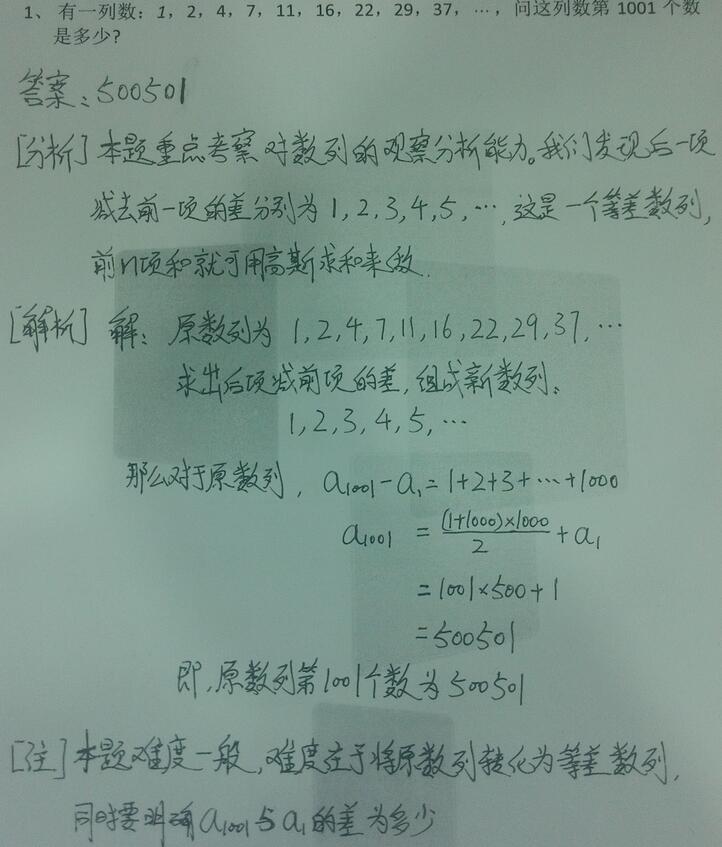 1、有一列数：1，2，4，7，11，16，22，29，37，…，问这列数第 1001 个数
是多少?
答案：500501
[分析] 本题重点考察对数列的观察分析能力。我们发现后一项
减去前一项的差分别为 1,2,3,4,5,…,这是一个等差数列,
前n项和就可用高斯求和来做.
[解析] 解：原数列为 1,2,4,7,11,16,22,29,37,…
求出后项减前项的差,组成新数列:
1,2,3,4,5,…
那么对于原数列, a1001-a1=1+2+3+…+1000
a1001 = (1+1000)×1000/2 + a1
=1001×500+1
=500501
即,原数列第1001个数为500501
[注] 本题难度一般,难度在于将原数列转化为等差数列,
同时要明确a1001与a1的差为多少